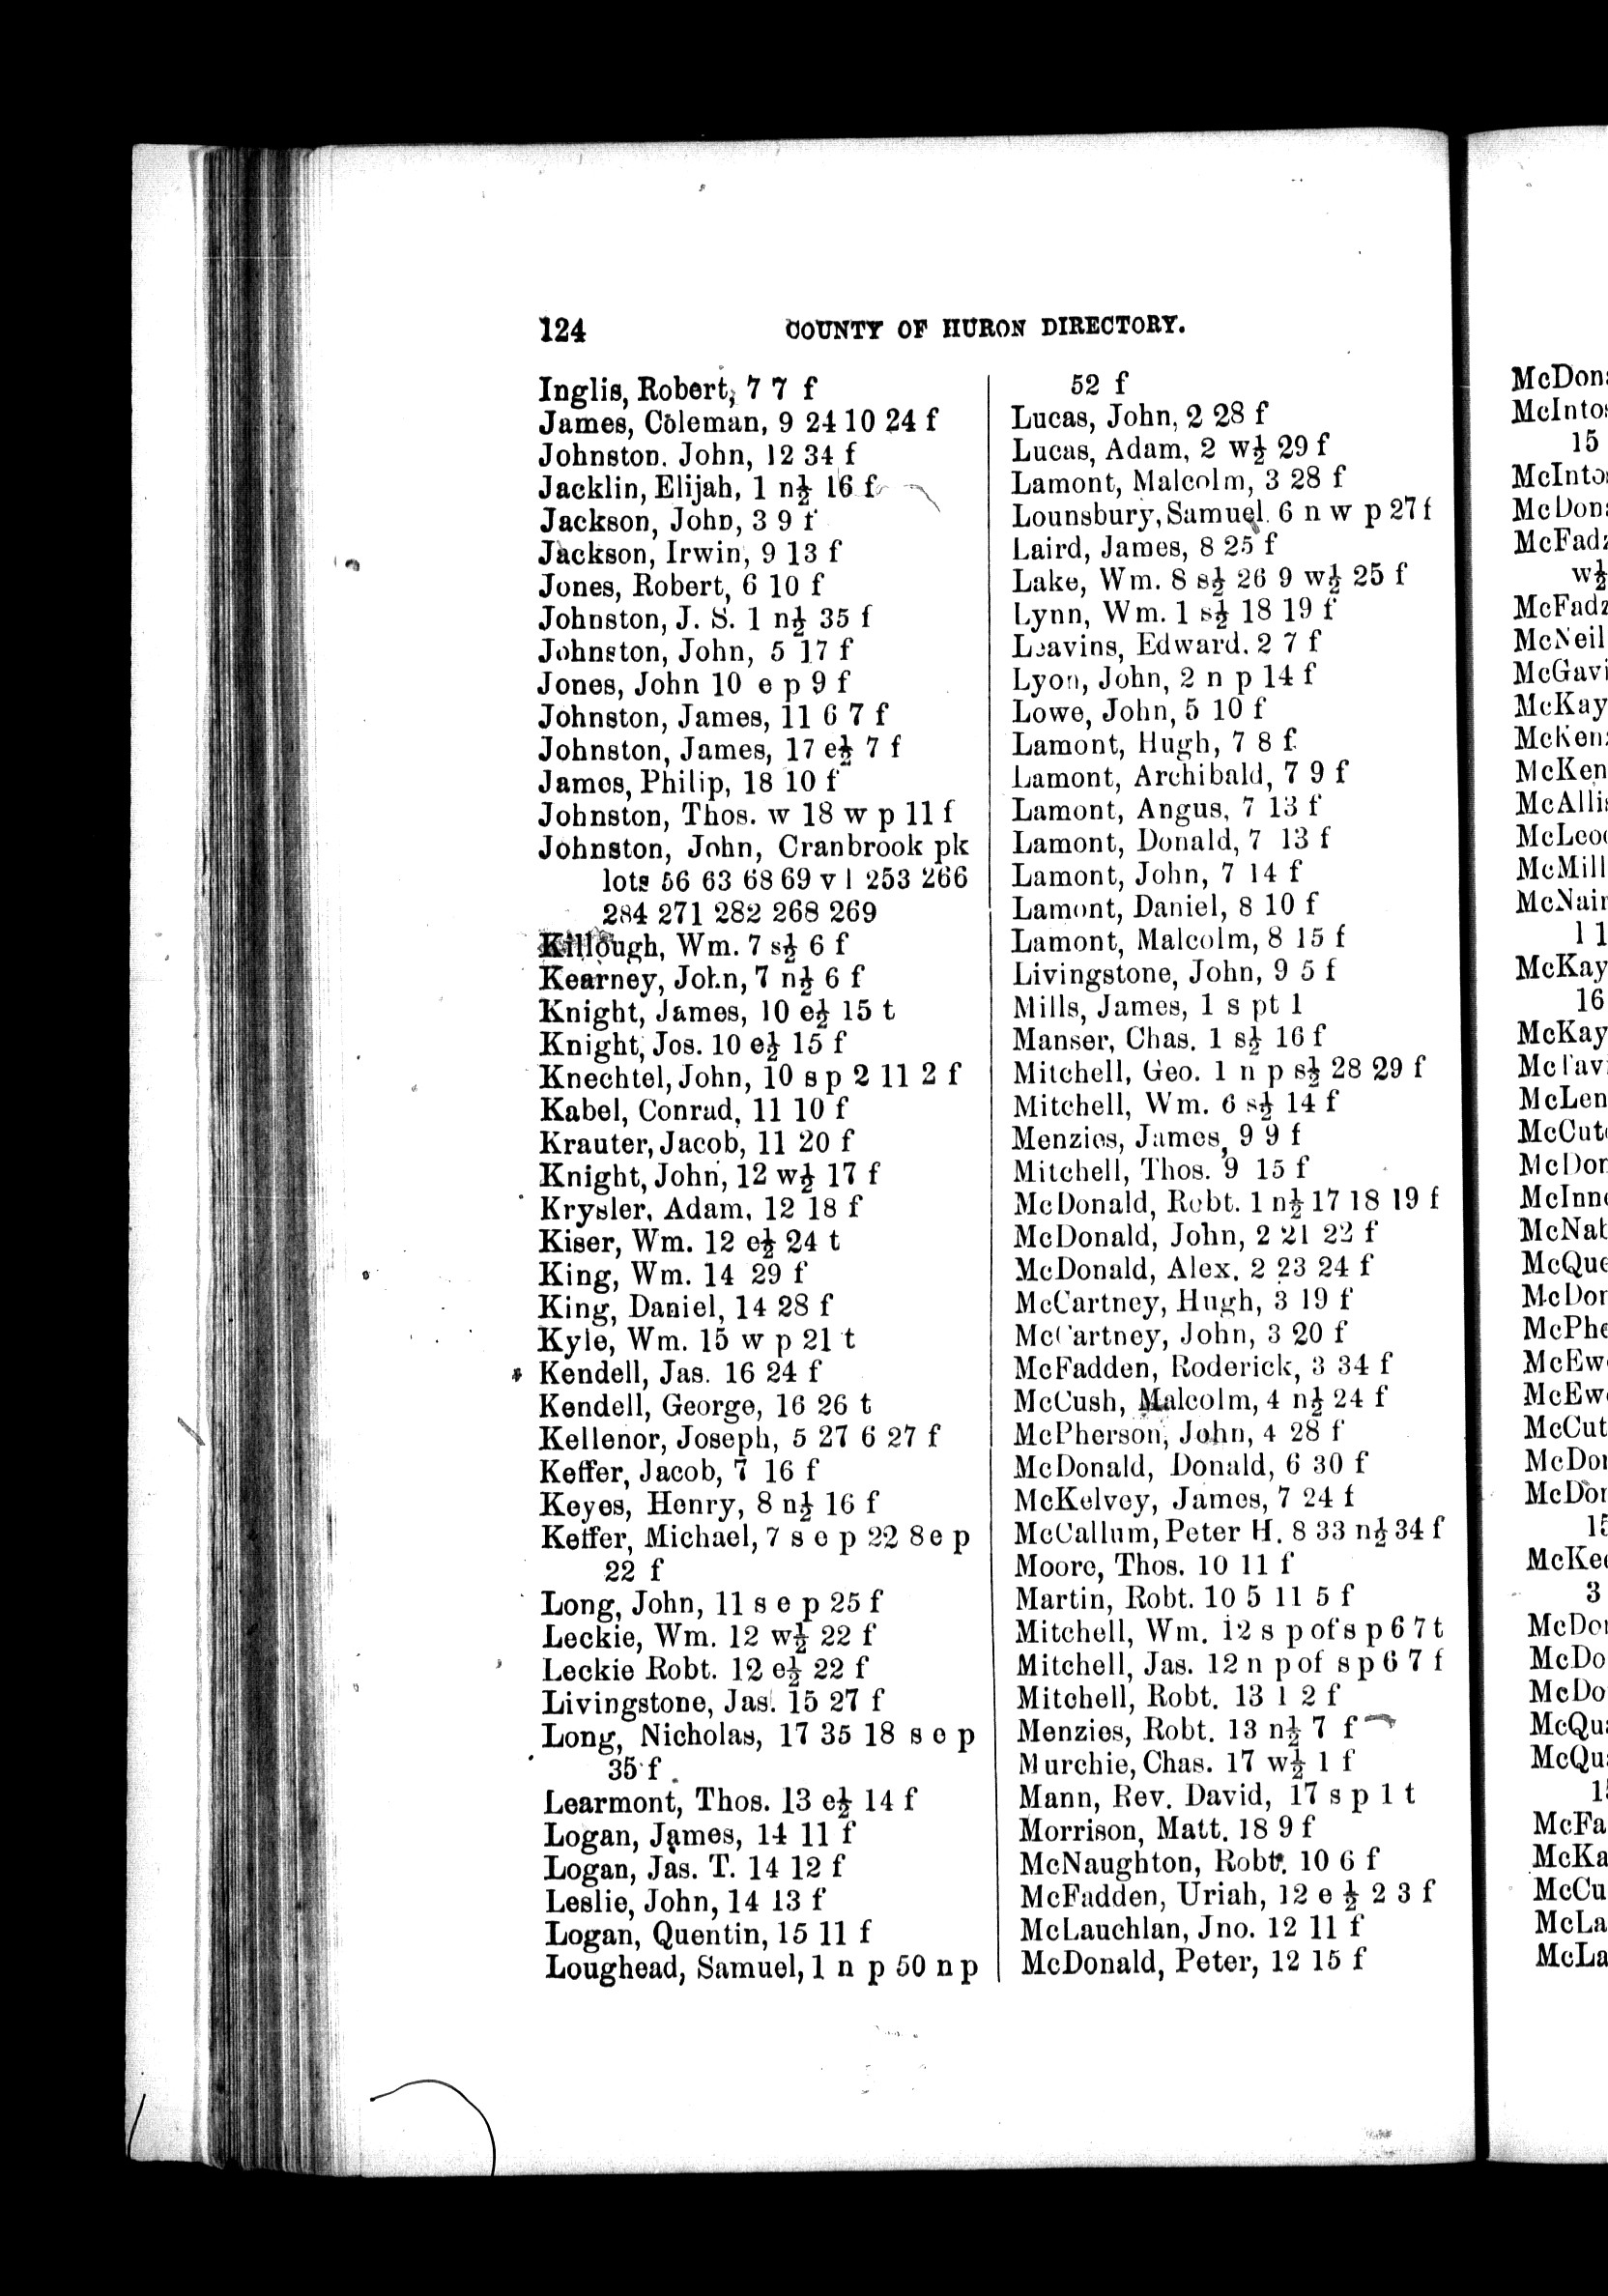 124 COUNTY OF HURON DIRECTORY.
Inglis, Robert, 7 7 f
James, Coleman, 9 24 10 24 f
Johnston. John, 12 34 f
Jacklin, Elijah, 1 n½ 16 f
Jackson, John, 3 9 f
Jackson, Irwin, 9 13 f
Jones, Robert, 6 10 f
Johnston, J. S. 1 n½ 35 f
Johnston, John, 5 17 f
Jones, John 10 e p 9 f
Johnston, James, 11 6 7 f
Johnston, James, 17 e½ 7 f
James, Philip, 18 10 f
Johnston, Thos. w 18 w p 11 f
Johnston, John, Cranbrook pk
lots 56 63 68 69 v l 253 266
284 271 282 268 269
Killough, Wm. 7 s½ 6 f
Kearney, John, 7 n½ 6 f
Knight, James, 10 e½ 15 t
Knight, Jos. 10 e½ 15 f
Knechtel, John, 10 s p 2 11 2 f
Kabel, Conrad, 11 10 f
Krauter, Jacob, 11 20 f
Knight, John, 12 w½ 17 f
Krysler, Adam, 12 18 f
Kiser, Wm. 12 e½ 24 t
King, Wm. 14 29 f
King, Daniel, 14 28 f
Kyle, Wm. 15 w p 21 t
Kendell, Jas. 16 24 f
Kendell, George, 16 26 t
Kellenor, Joseph, 5 27 6 27 f
Keffer, Jacob, 7 16 f
Keyes, Henry, 8 n½ 16 f
Keffer, Michael, 7 s e p 22 8 e p
22 f
Long, John, 11 s e p 25 f
Leckie, Wm. 12 w½ 22 f
Leckie Robt. 12 e½ 22 f
Livingstone, Jas. 15 27 f
Long, Nicholas, 17 35 18 s e p
35 f
Learmont, Thos. 13 e½ 14 f
Logan, James, 14 11 f
Logan, Jas. T. 14 12 f
Leslie, John, 14 13 f
Logan, Quentin, 15 11 f
Loughead, Samuel, 1 n p 50 n p
52 f
Lucas, John, 2 28 f
Lucas, Adam, 2 w½ 29 f
Lamont, Malcolm, 3 28 f
Lounsbury, Samuel. 6 n w p 27 f
Laird, James, 8 25 f
Lake, Wm. 8 s½ 26 9 w½ 25 f
Lynn, Wm. 1 s½ 18 19 f
Leavins, Edward. 2 7 f
Lyon, John, 2 n p 14 f
Lowe, John, 5 10 f
Lamont, Hugh, 7 8 f
Lamont, Archibald, 7 9 f
Lamont, Angus, 7 13 f
Lamont, Donald, 7 13 f
Lamont, John, 7 14 f
Lamont, Daniel, 8 10 f
Lamont, Malcolm, 8 15 f
Livingstone, John, 9 5 f
Mills, James, 1 s pt 1
Manser, Chas. 1 s½ 16 f
Mitchell, Geo. 1 n p s½ 28 29 f
Mitchell, Wm. 6 s½ 14 f
Menzies, James, 9 9 f
Mitchell, Thos. 9 15 f
McDonald, Robt. 1 n½ 17 18 19 f
McDonald, John, 2 21 22 f
McDonald, Alex. 2 23 24 f
McCartney, Hugh, 3 19 f
McCartney, John, 3 20 f
McFadden, Roderick, 3 34 f
McCush, Malcolm, 4 n½ 24 f
McPherson, John, 4 28 f
McDonald, Donald, 6 30 f
McKelvey, James, 7 24 f
McCallum, Peter H. 8 33 n½ 34 f
Moore, Thos. 10 11 f
Martin, Robt. 10 5 11 5 f
Mitchell, Wm. 12 s p of s p 6 7 t
Mitchell, Jas. 12 n p of s p 6 7 f
Mitchell, Robt. 13 1 2 f
Menzies, Robt. 13 n½ 7 f
Murchie, Chas. 17 w½ 1 f
Mann, Rev. David, 17 s p 1 t
Morrison, Matt. 18 9 f
McNaughton, Robt. 10 6 f
McFadden, Uriah, 12 e ½ 2 3 f
McLauchlan, Jno. 12 11 f
McDonald, Peter, 12 15 f